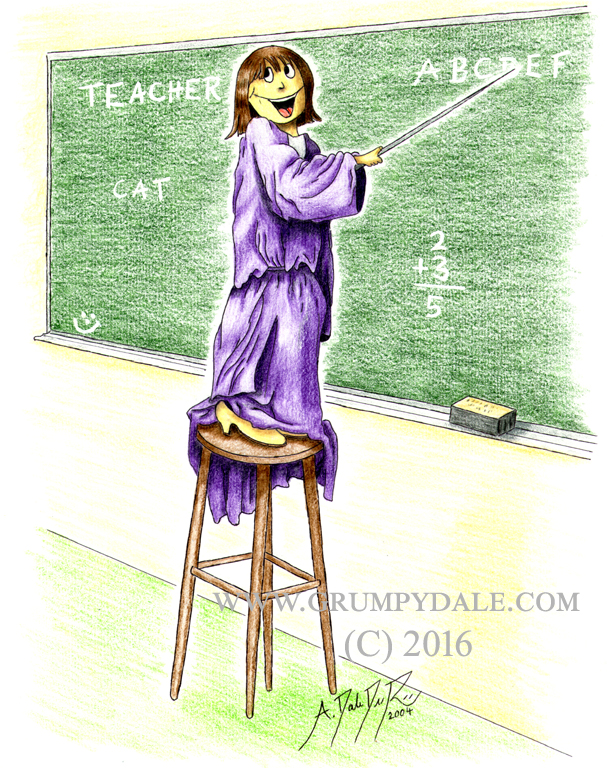 TEACHER
ABCDEF
CAT
2
+3
5
WWW.GRUMPYDALE.COM
(C) 2016
2004